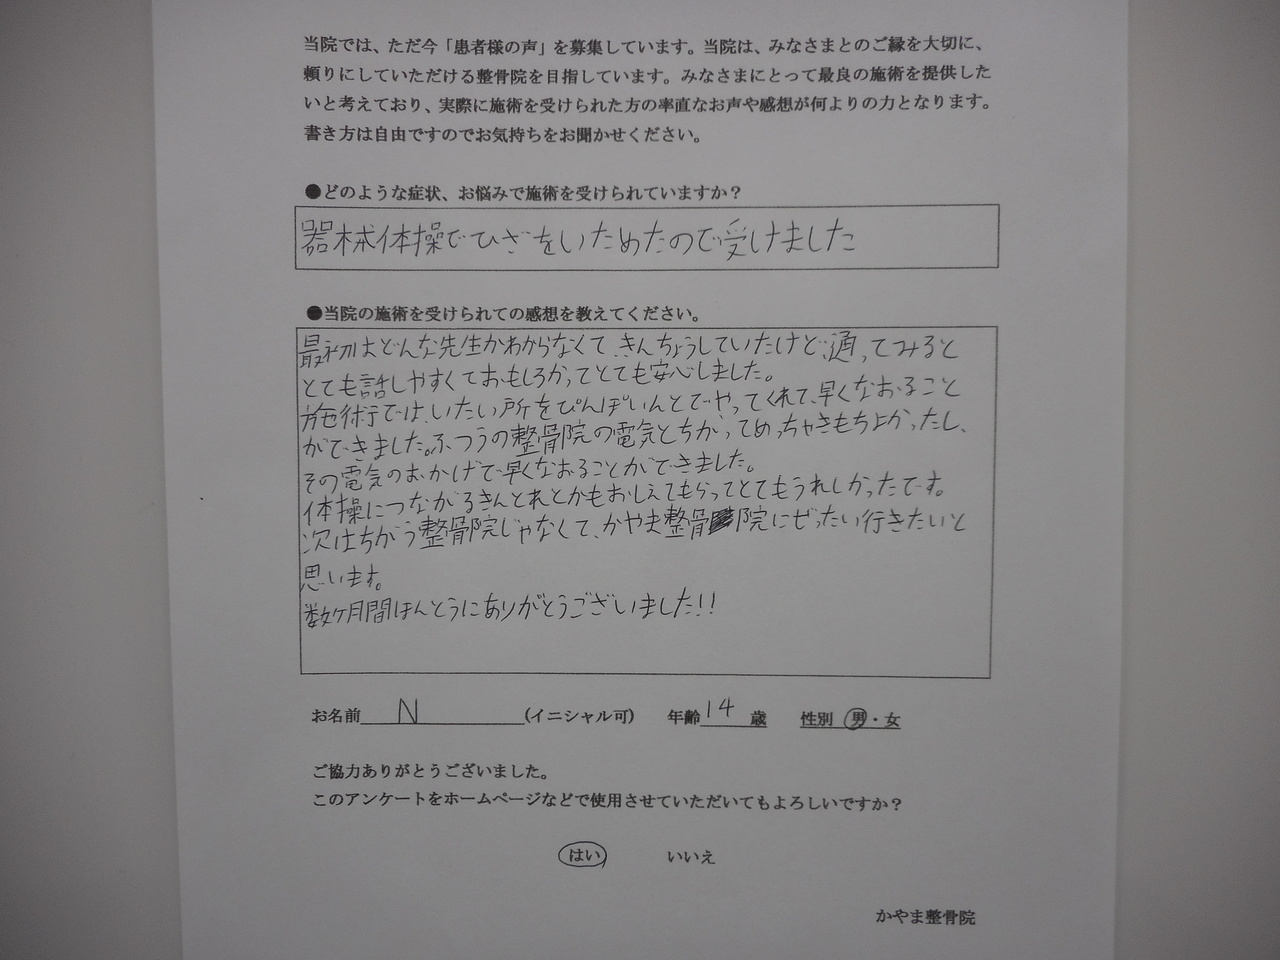 当院では、ただ今「患者様の声」を募集しています。当院は、みなさまとのご縁を大切に、
頼りにしていただける整骨院を目指しています。みなさまにとって最良の施術を提供した
いと考えており、実際に施術を受けられた方の率直なお声や感想が何よりの力となります。
書き方は自由ですのでお気持ちをお聞かせください。
●どのような症状、お悩みで施術を受けられていますか？
器械体操でひざをいためたので受けました
●当院の施術を受けられての感想を教えてください。
最初はどんな先生かわからなくて、きんちょうしていたけど、通ってみると
とても話しやすくておもしろかってとても安心しました。
施術では、いたい所をぴんぽいんとでやってくれて、早くなおること
ができました。ふつうの整骨院の電気とちがってめっちゃきもちよかったし、
その電気のおかげで早くなおることができました。
体操につながるきんとれとかもおしえてもらってとてもうれしかったです。
次はちがう整骨院じゃなくて、かやま整骨院にぜったい行きたいと
思います。
数ケ月間ほんとうにありがとうございました!!
お名前 N (イニシャル可) 年齢 14 歳 性別 男・女
ご協力ありがとうございました。
このアンケートをホームページなどで使用させていただいてもよろしいですか？
はい いいえ
かやま整骨院